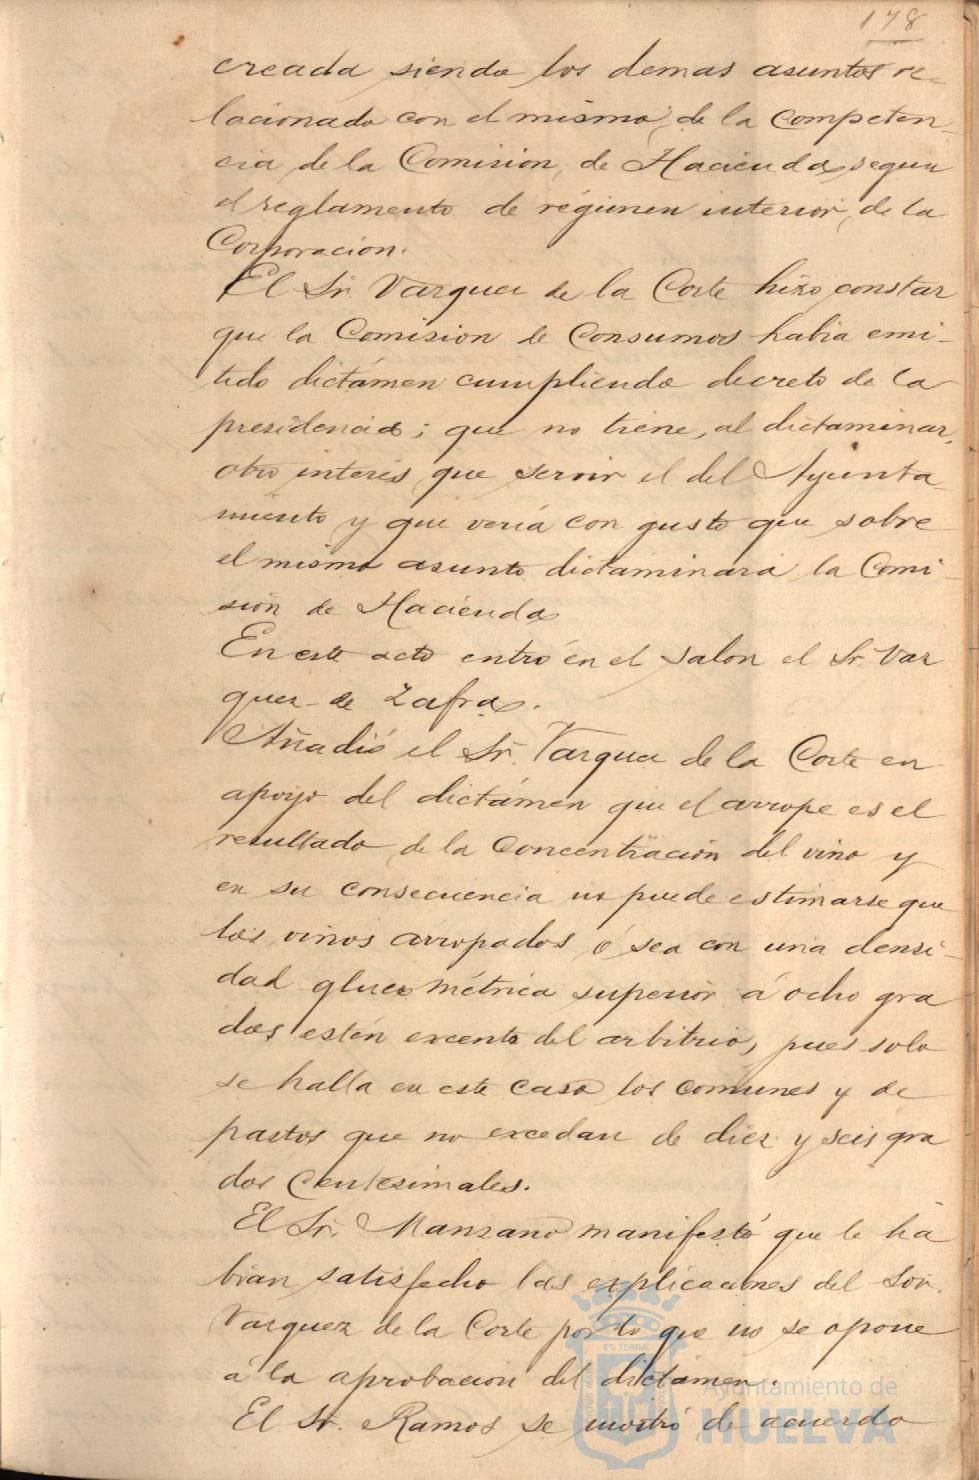 178
creada siendo los demas asuntos re-
lacionado con el mismo, de la competen-
cia de la Comision de Hacienda, segun
el reglamento de régimen interior de la
Corporacion.
El Sr. Vazquez de la Corte hizo constar
que la Comision de Consumos habia emi-
tido dictámen cumpliendo decreto de la
presidencia; que no tiene, al dictaminar,
otro interés que servir el del Ayunta-
miento y que vería con gusto que sobre
el mismo asunto dictaminara la Comi-
sión de Hacienda
En este acto entró en el salon el Sr. Vaz
quez de Zafra.
Añadió el Sr. Vazquez de la Corte en
apoyo del dictámen que el arrope es el
resultado de la concentración del vino y
en su consecuencia no puede estimarse que
los vinos arropados ó sea con una densi-
dad glucométrica superior á ocho gra
dos estén excento del arbitrio, pues solo
se halla en este caso los comunes y de
pastos que no excedan de diez y seis gra
dos centesimales.
El Sr. Manzano manifestó que le ha
bian satisfecho las explicaciones del Sor.
Vazquez de la Corte por lo que no se opone
á la aprobacion del dictamen.
El Sr. Ramos se mostró de acuerdo
ET TERRÆ
Ayuntamiento de
HUELVA